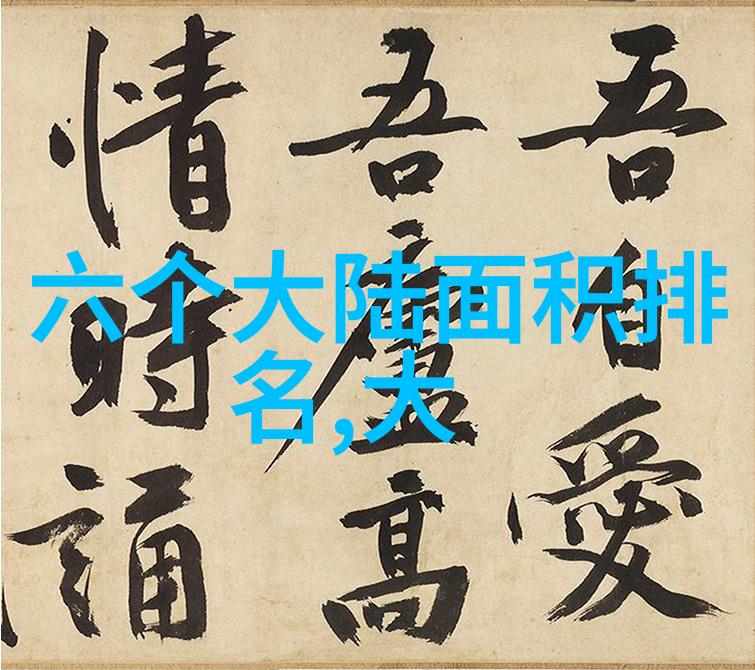 吾自愛
吾廬高
情時誦
六个大陆面积排
名,大